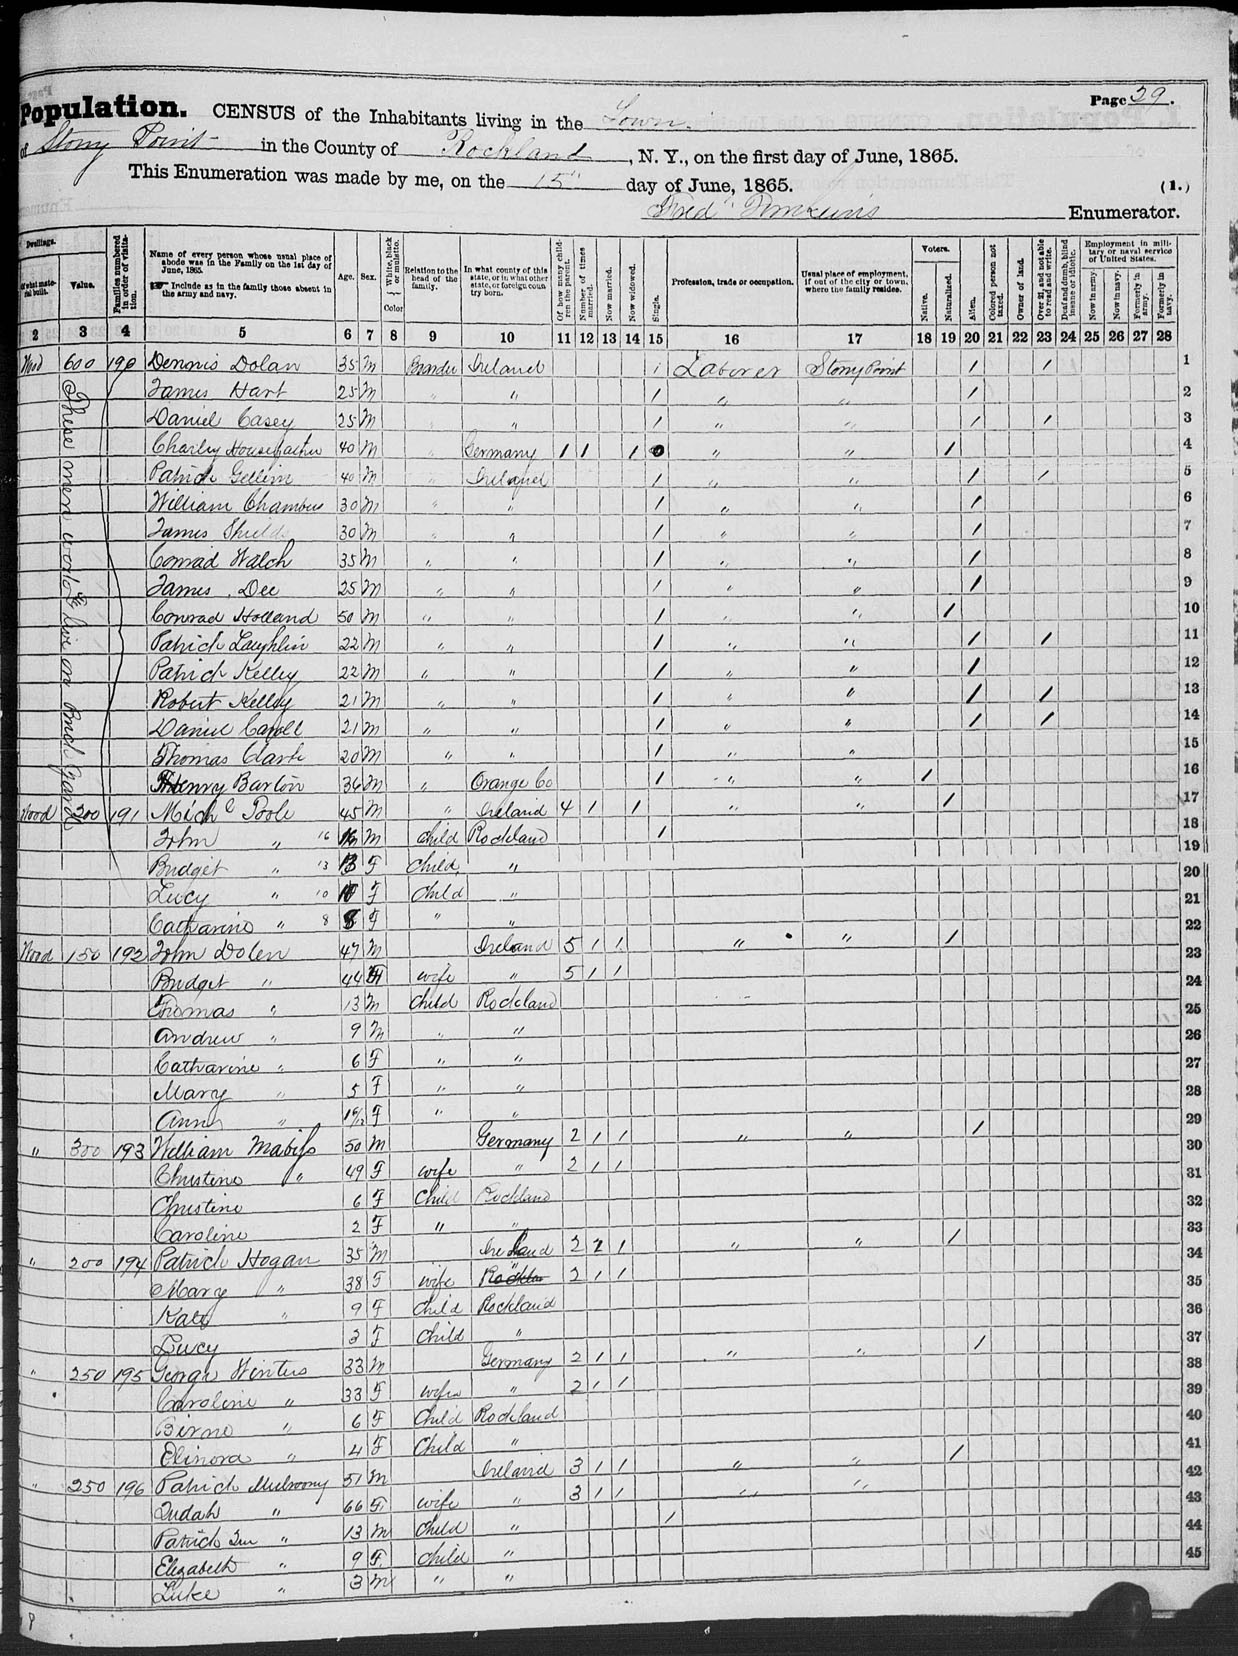 Population. CENSUS of the Inhabitants living in the Town Page 39.
of Stony Point in the County of Rockland, N. Y., on the first day of June, 1865.
This Enumeration was made by me, on the 15" day of June, 1865. (1.)
Fred. Tomkins Enumerator.
Dwellings. Of what material built. Value. Families numbered in order of visitation. Name of every person whose usual place of abode was in the Family on the 1st day of June, 1865. Include as in the family those absent in the army and navy. Age. Sex. Color { White, black or mulatto. Relation to the head of the family. In what county of this state, or in what other state, or foreign country born. Of how many children the parent. Number of times married. Now married. Now widowed. Single. Profession, trade or occupation. Usual place of employment, if out of the city or town, where the family resides. Voters. Native. Naturalized. Alien. Colored person not taxed. Owner of land. Over 21, and not able to read and write. Deaf and dumb, blind insane or idiotic. Employment in military or naval service of United States. Now in army. Now in navy. Formerly in army. Formerly in navy.
2 3 4 5 6 7 8 9 10 11 12 13 14 15 16 17 18 19 20 21 22 23 24 25 26 27 28
Wood 600 190 Dennis Dolan 35 M Boarder Ireland 1 Laborer Stony Point 1 1 1
James Hart 25 M " " 1 " " 1 2
Daniel Casey 25 M " " 1 " " 1 1 3
Charley 40 M Germany 1 1 1 " " 1 4
Patrick 40 M " Ireland 1 " " 1 1 5
William Chambers 30 M " " 1 " " 1 6
James Shield 30 M " " 1 " " 1 7
Conrad Walch 35 M " " 1 " " 1 8
James Dee 25 M " " 1 " " 1 9
Conrad Holland 50 M " " 1 " 1 10
Patrick Laughlin 22 M " " 1 " " 1 1 11
Patrick Kelley 22 M " " 1 " " 1 12
Robert Kelley 21 M " " 1 " " 1 1 13
Daniel Caroll 21 M " " 1 " " 1 1 14
Thomas Clark 20 M " " 1 " " 15
Henry Barton 36 M " Orange Co 1 " " 1 16
Wood 200 191 Mich Poole 45 M " Ireland 4 1 1 " " 1 17
John " 16 16 M Child Rockland 1 18
19
Bridget " 13 13 F Child " 20
Lucy " 10 10 F Child " 21
Catharine " 8 8 F " " 22
Wood 150 192 John Dolen 47 M Ireland 5 1 1 " " 1 23
Bridget " 44 F wife " 5 1 1 24
Thomas " 13 M Child Rockland 25
Andrew " 9 M " " 26
Catharine " 6 F " " 27
Mary " 5 F " " 28
Ann " F " " 29
" 300 193 William 50 M Germany 2 1 1 " " 1 30
Christine " 49 F wife " 2 1 1 31
Christine 6 F Child Rockland 32
Caroline 2 F " " 33
" 200 194 Patrick Hogan 35 M Ireland 2 1 1 " " 1 34
Mary " 38 F wife " 2 1 1 35
Katy " 9 F Child Rockland 36
Lucy 3 F Child " 37
" 250 195 George Winters 33 M Germany 2 1 1 " " 1 38
Caroline " 33 F wife " 2 1 1 39
" 6 F Child Rockland 40
Elinora " 4 F Child " 41
" 250 196 Patrick Mulroony 51 M Ireland 3 1 1 " " 1 42
Judah " 66 F wife " 3 1 1 " " 43
Patrick Jun " 13 M Child " 1 44
Elizabeth " 9 F Child " 45
Luke " 3 M " "
These men work & live on Brick yard